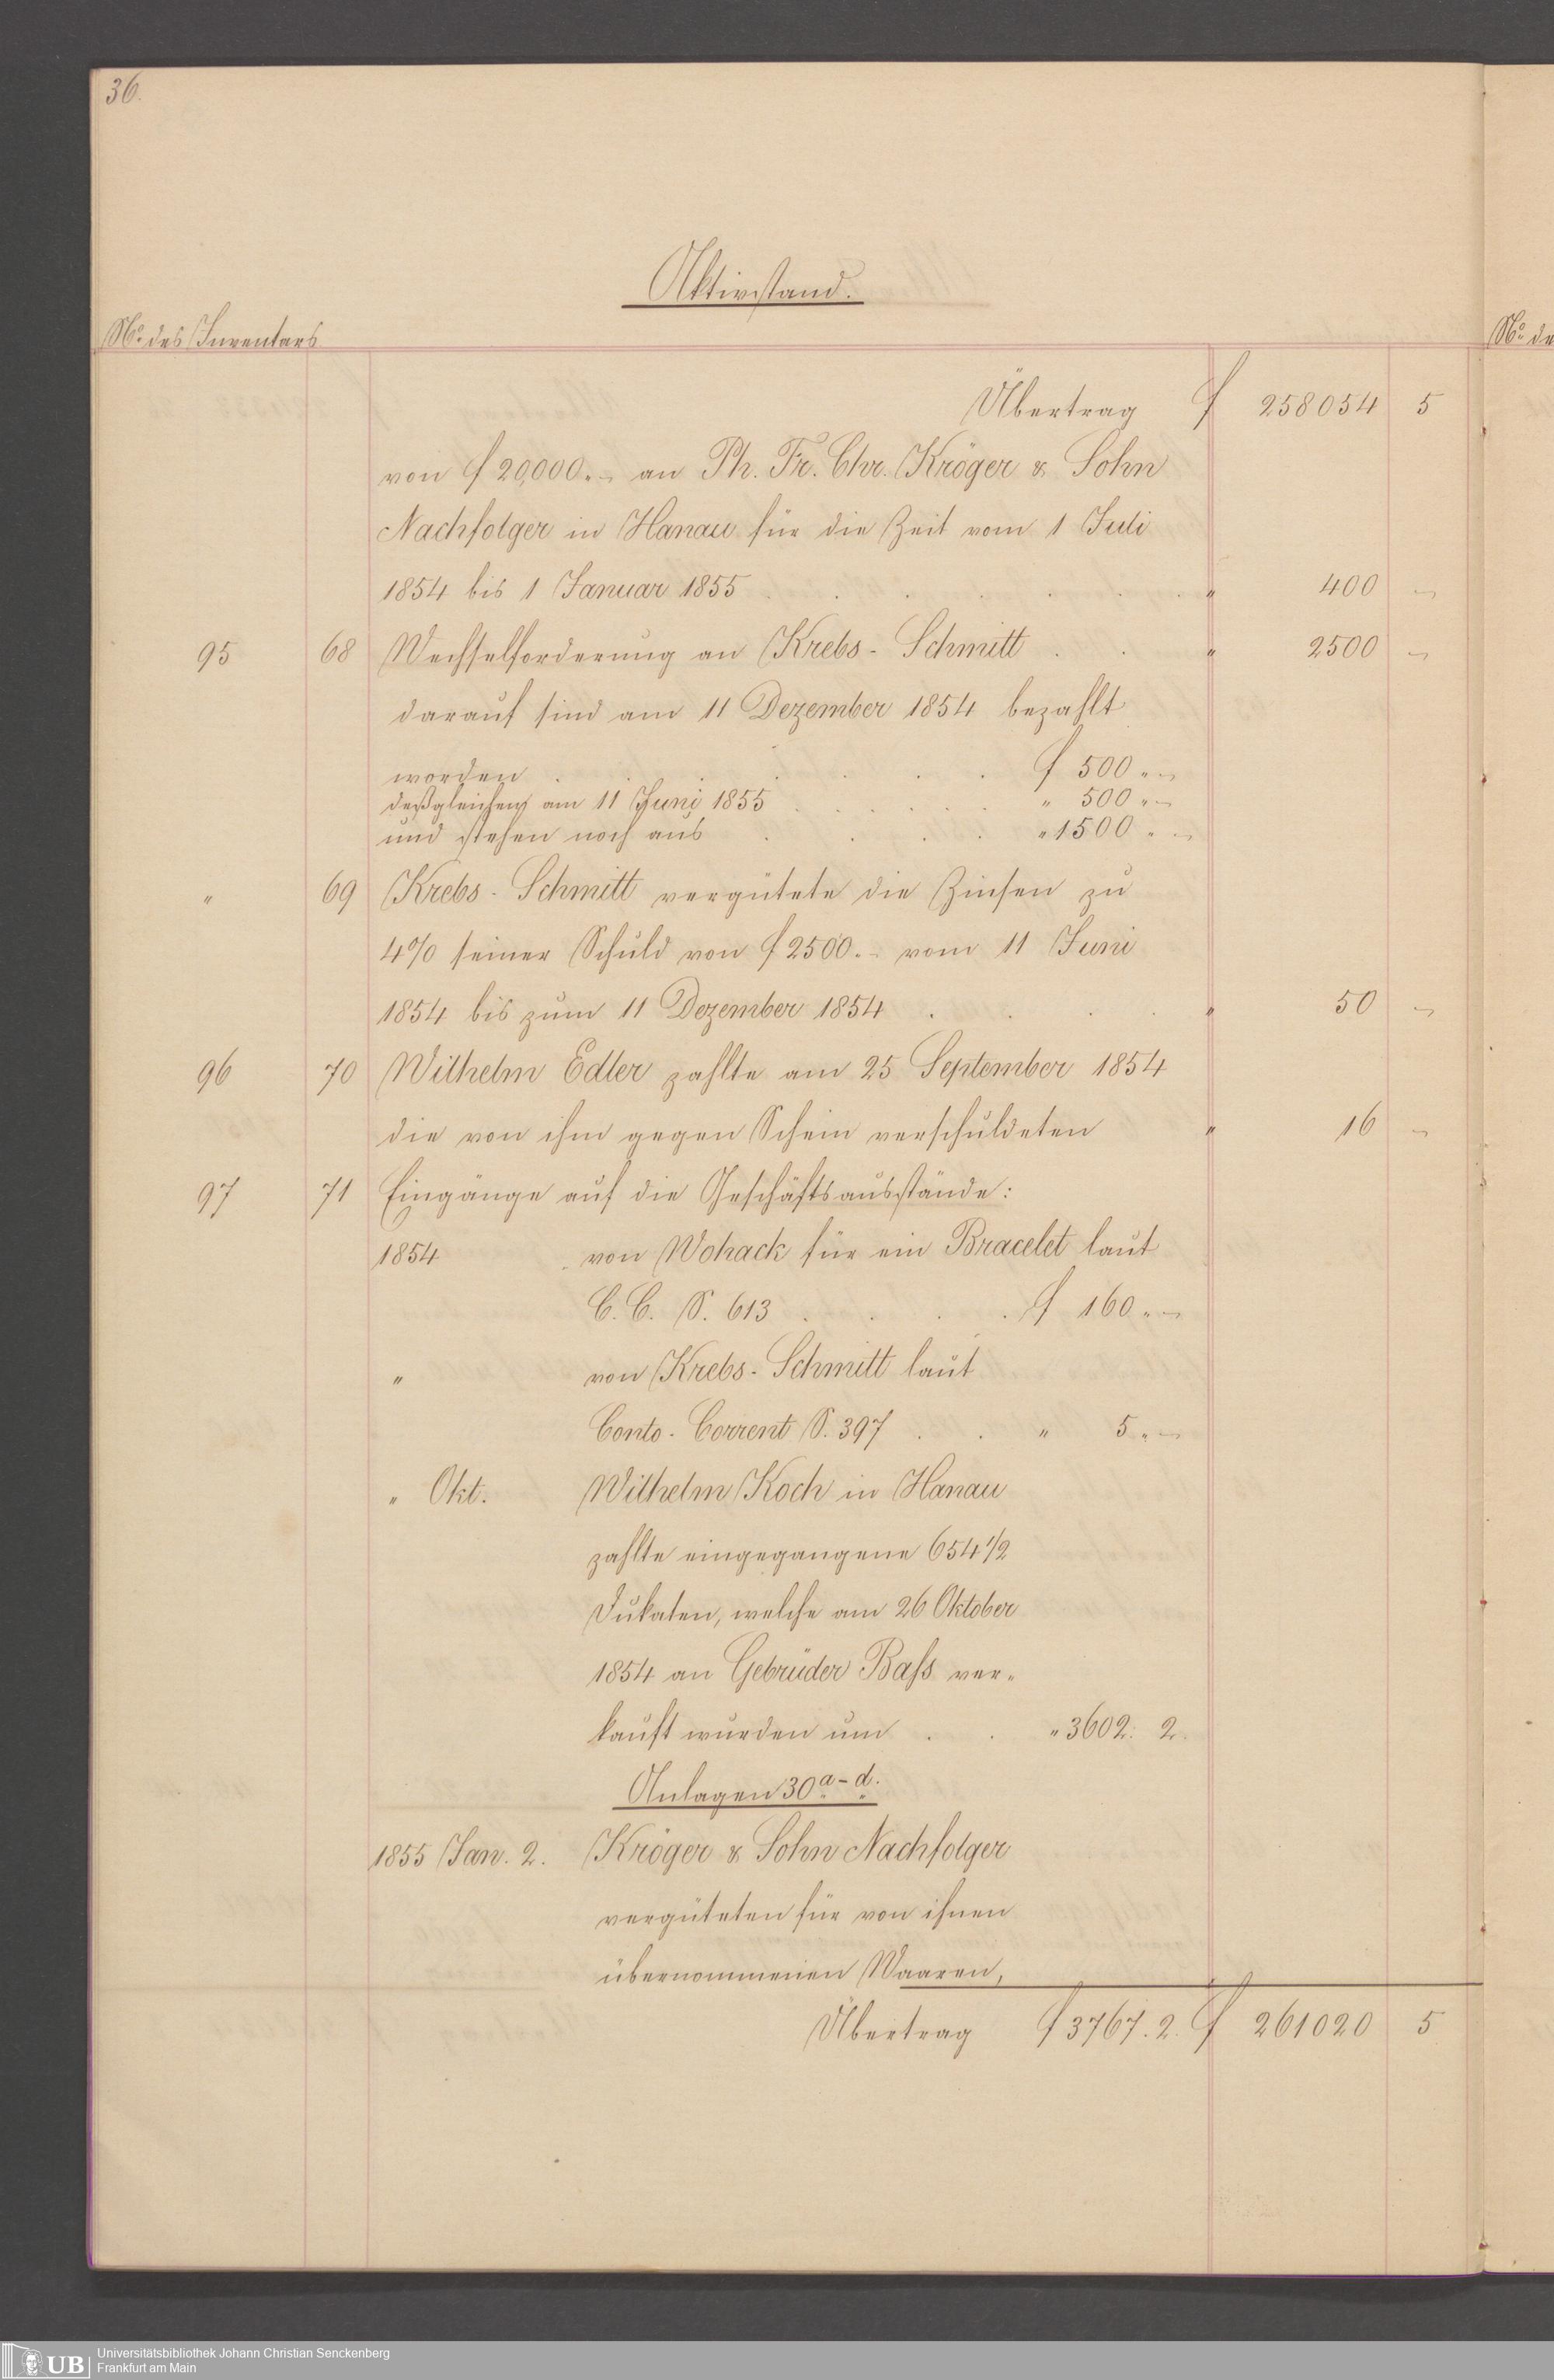 36.
Aktivstand.
No. des Inventars
No. de
Übertrag f 258054 5
von f 20,000.- an Ph. Fr. Chr. Kröger & Sohn
Nachfolger in Hanau für die Zeit vom 1 Juli
1854 bis 1 Januar 1855 . . . . . . . " 400 -
95 68 Wechselforderung an Krebs-Schmitt . . " 2500 -
darauf sind am 11 Dezember 1854 bezahlt
worden . . . . . f 500 " -
deßgleichen am 11 Juni 1855 . . . . " 500 " -
und stehen noch aus . . . . " 1500 " -
" 69 Krebs-Schmitt vergütete die Zinsen zu
4% seiner Schuld von f 2500.- vom 11 Juni
1854 bis zum 11 Dezember 1854 . . . . " 50 -
96 70 Wilhelm Edler zahlte am 25 September 1854
die von ihm gegen Schein verschuldeten " 16 -
97 71 Eingänge auf die Geschäftsausstände:
1854 von Wohack für ein Bracelet laut
C. C. S. 613 . . . . f 160 " -
" von Krebs-Schmitt laut
Conto-Corrent S. 397 . . " 5 " -
" Okt. Wilhelm Koch in Hanau
zahlte eingegangene 654 1/2
Dukaten, welche am 26 Oktober
1854 an Gebrüder Bass ver-
kauft wurden um . . " 3602. 2.
Anlagen 30 a-d.
1855 Jan. 2. Kröger & Sohn Nachfolger
vergüteten für von ihnen
übernommenen Waaren,
Übertrag f 3767. 2. f 261020 5
UB Universitätsbibliothek Johann Christian Senckenberg
Frankfurt am Main